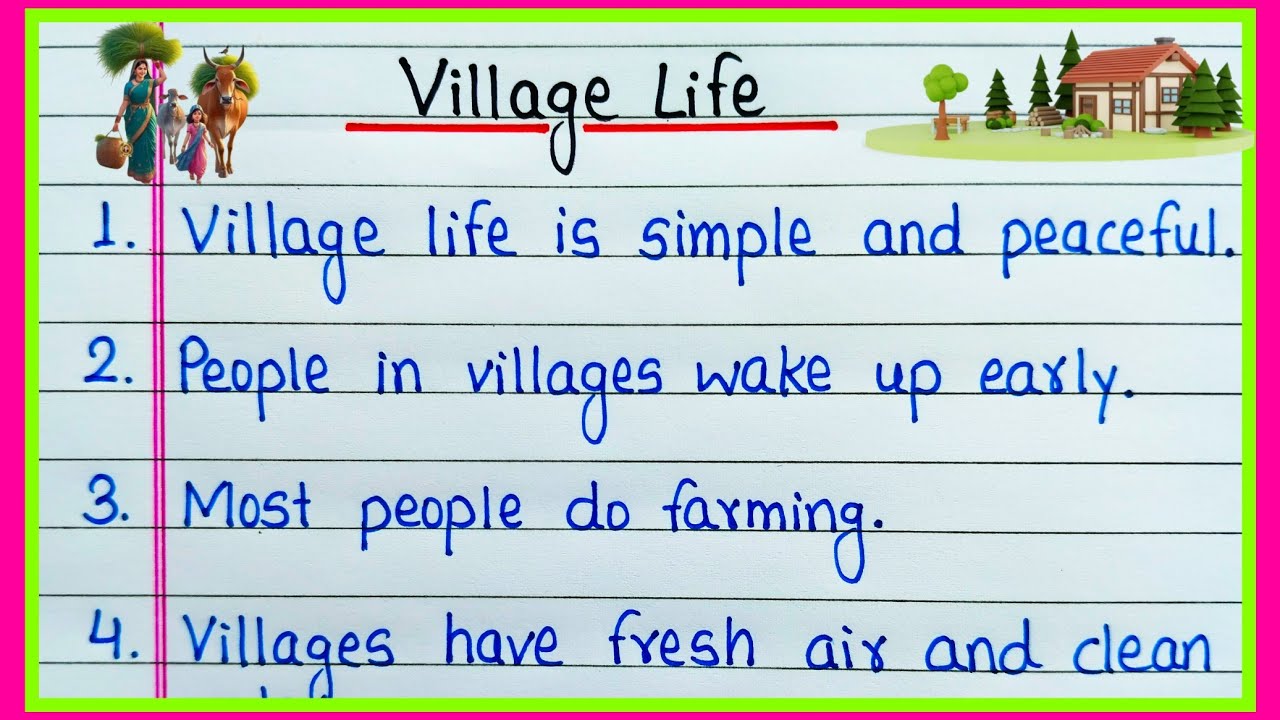 Village Life
1. Village life is simple and peaceful.
2. People in villages wake up early.
3. Most people do farming.
4. Villages have fresh air and clean